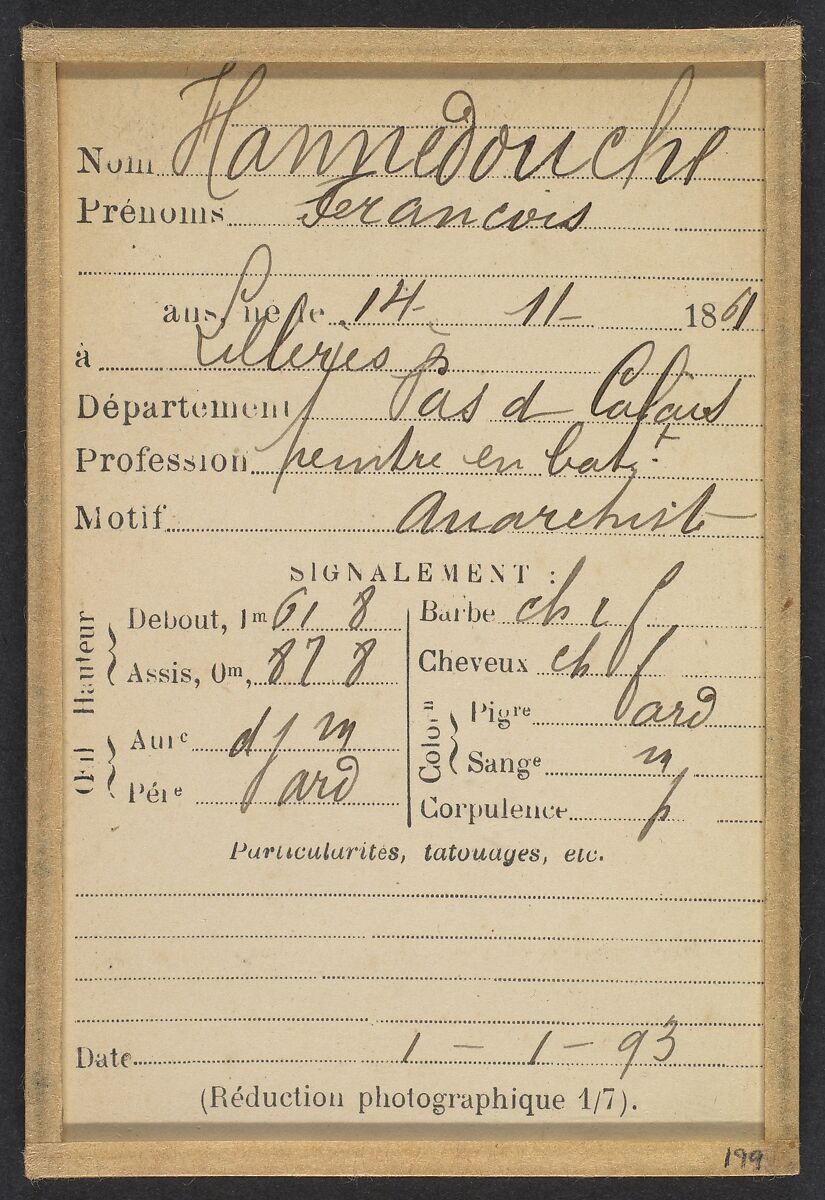 Nom Hannedouche
Prénoms Francois
ans, né le 14 - 11 - 1861
à Lillerès
Département Pas d Calais
Profession peintre en bat.t
Motif Anarchist
SIGNALEMENT :
Hauteur
Debout, 1m 61 8
Assis, 0m, 87 8
Œil
Aure d/m
Pére ard
Barbe ch r f
Cheveux ch f
Color n
Pigre ard
Sange m
Corpulence p
Particularités, tatouages, etc.
Date 1 - 1 - 93
(Réduction photographique 1/7).
199